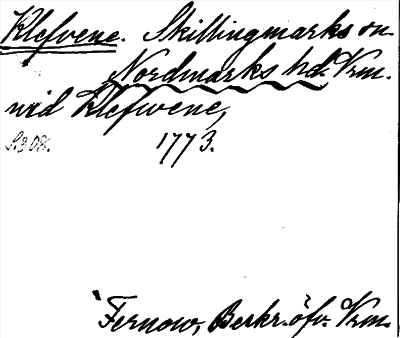 Klefvene. Skillingmarks sn
Nordmarks hd. Vrm.
vid Klefwene,
1773.
Fernow, Beskr. öfv. Vrm.